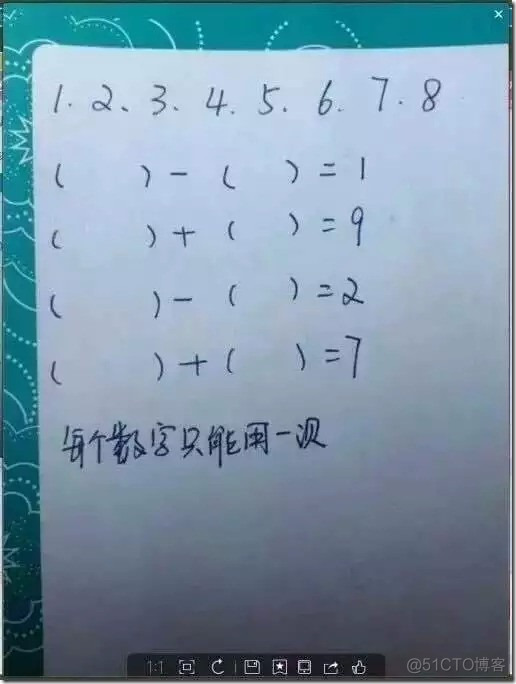 1. 2、3、4. 5. 6. 7. 8
(  ) - (  ) = 1
(  ) + (  ) = 9
(  ) - (  ) = 2
(  ) + (  ) = 7
每个数字只能用一次
1:1
@51CTO博客